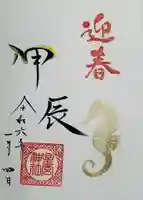 迎春
甲辰
令和六年
一月四日